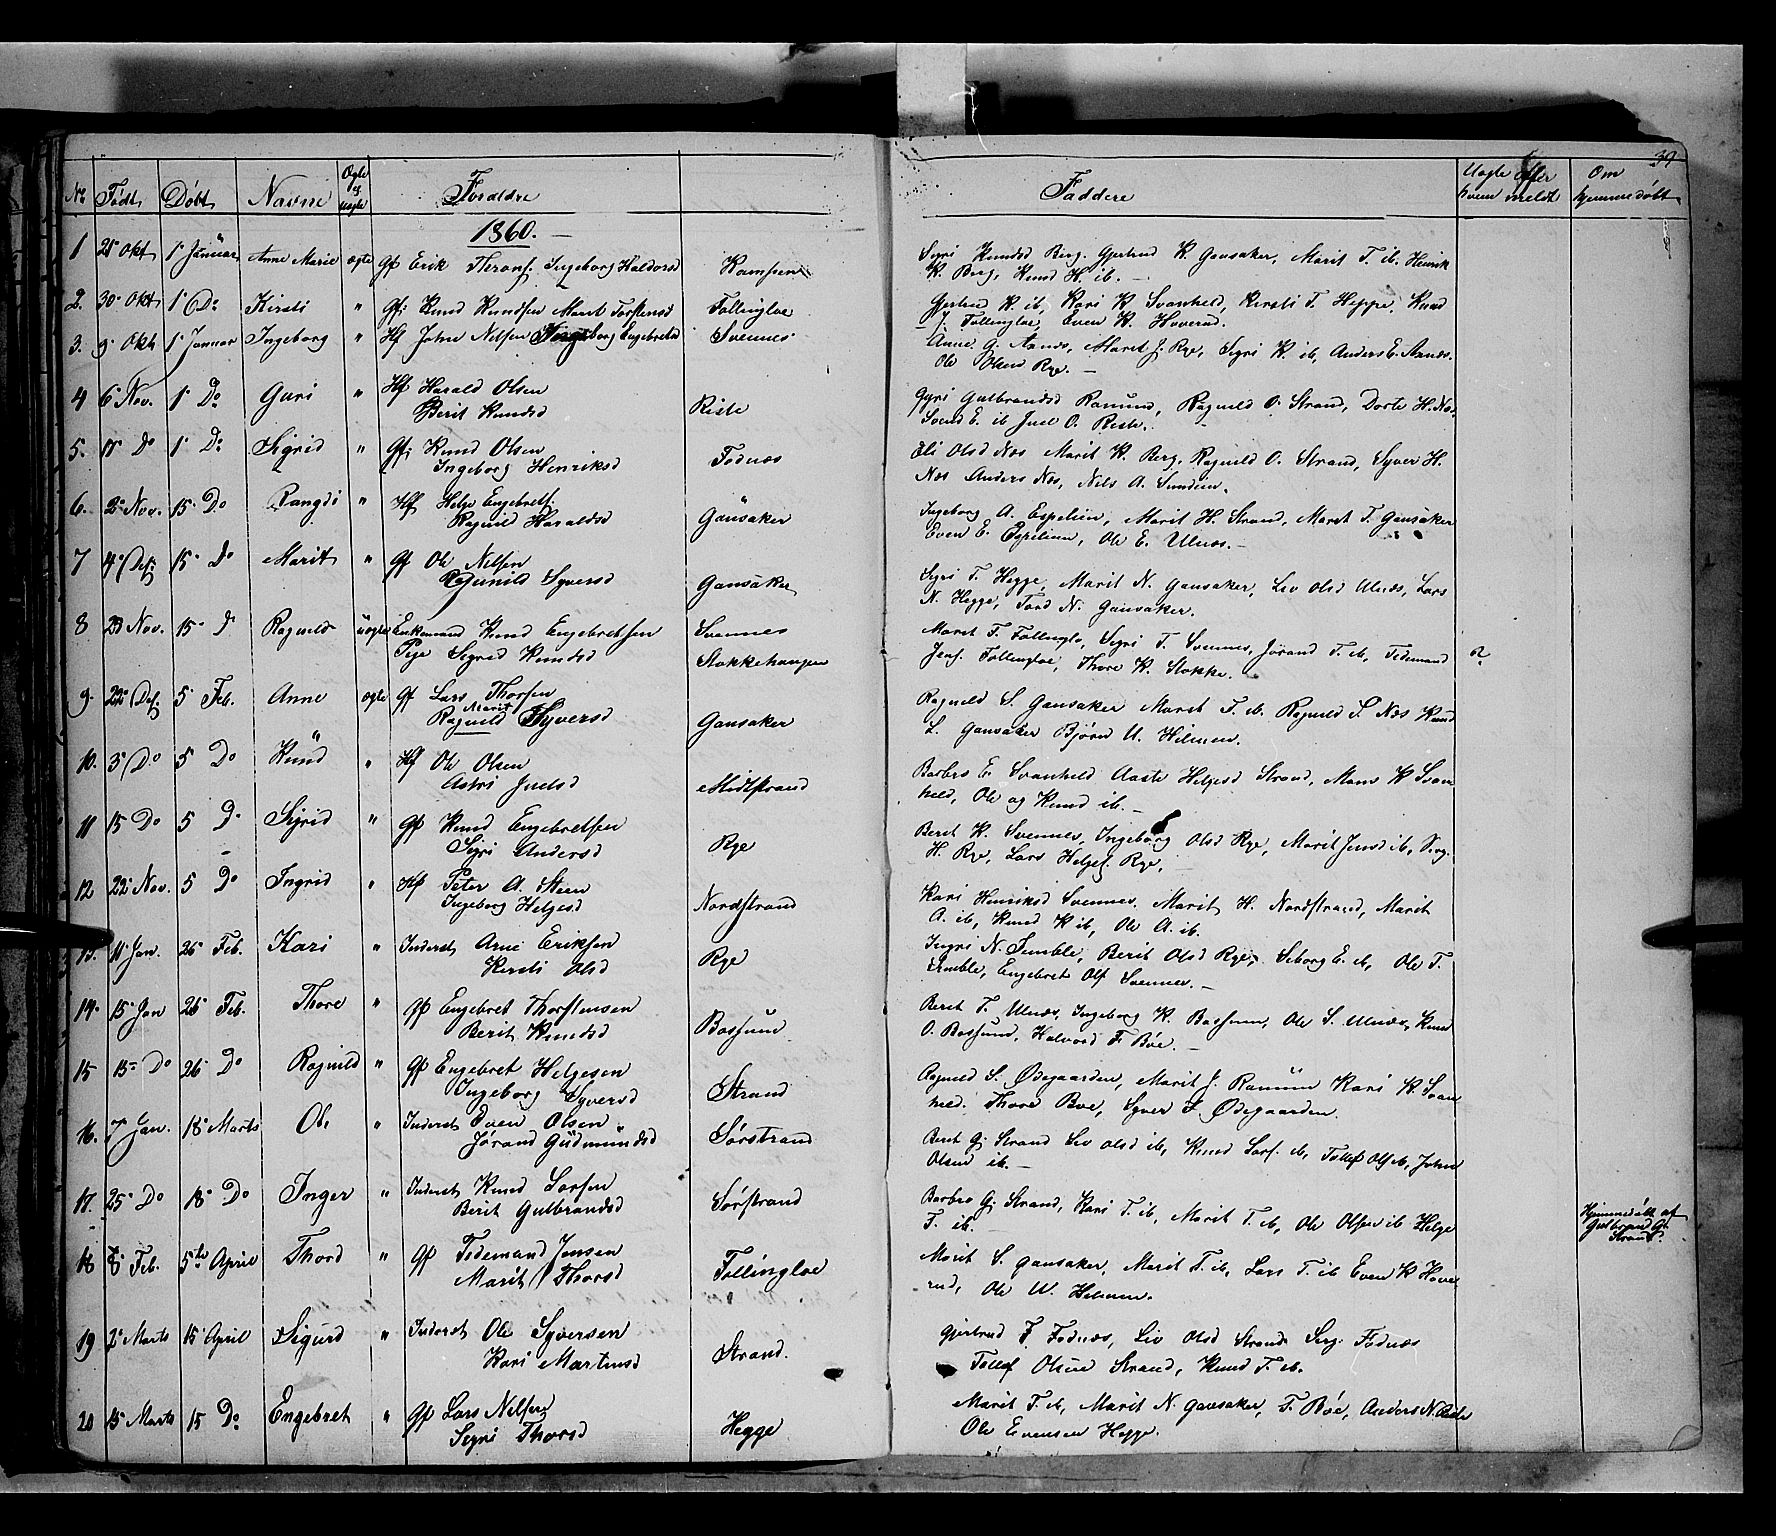 39
No Født Døbt Navne Ægte eg. uægte Forældre Faddere Uægte efter hvem meldt Om hjemmedøbt
1860.
1 25 Okt 1 Januar Anne Marie ægte Gf Erik Ingeborg Haldorsd
Syri Knudsd Berg. Gjertrud K. Gansaker, Marit T. ib. Henrik
K. Berg, Knud H. ib.
2. 30 Okt 1 Do Kirsti " Gf. Knud Knudsen Marit Torstensd Follingloe
Gjertrud K. ib, Kari K. Svanheld, Kirsti T. Heppe, Knud
J. Follingloe, Even K. Hoverud.
3. 9 Okt 1 Januar Ingeborg " Hf John Nilsen Ingeborg Engebretsd Svennes
Anne G. Aanæs, Marit J. Rye, Sigri K. ib, Anders E. Aanæs.
Ole Olsen Rye.
4 6 Nov. 1 Do Guri " Hf Harald Olsen
Berit Knudsd Riste
Gyri Gulbrandsd Ranum, Ragnild O. Strand, Dorte H. Næs
Svend E. ib Juel O. Riste.
5. 17 Do 1 Do Sigrid " Gf. Knud Olsen
Ingeborg Henriksd Fodnæs
Eli Olsd Næs Marit K. Berg, Ragnild O. Strand, Syver H.
Næs Anders Næs, Nils A. Sundein.
6. 2 Nov. 15 Do Rangdi " Hf Helge Engebretf.
Ragnild Haraldsd Gansaker
Ingeborg A. Espelien, Marit H. Strand, Marit T. Gansaker
Even E. Espelien, Ole E. Ulnæs.
7 4 Des 15 Do Marit " Gf Ole Nilsen
Gunild Syversd Gansaker
Sigri T. Hegge, Marit N. Gansaker, Liv Olsd Ulnæs, Lars
N. Hegge, Tord N. Gansaker.
8 23 Nov. 15 D Ragnild uægte Enkemand Knud Engebretsen Svennes
Pige Sigrid Knudsd Stokkehaugen
Marit T. Follinglo, Sigri T. Svennes, Jørand T. ib, Tidemand
Jensf. Follingloe, Thore K. Stokke.
2
9. 22 Des 5 Feb. Anne ægte Gf Lars Thorsen
Marit
Ragnild Syversd Gansaker
Ragnild S. Gansaker Marit T. ib. Ragnild S. Næs Knud
L. Gansaker Bjørn U. Hilmen.
10. 3 Do 5 Do Knud " Hf Ole Olsen
Astri Juelsd Midtstrand
Barbro E. Svanheld Aaste Helgesd Strand, Mons K Svan
held, Ole og Knud ib.
11 15 Do 5 D Sigrid " Gf Knud Engebretsen
Sigri Andersd Rye
Berit K. Svennes, Ingeborg Olsd Rye, Marit Jensd ib,
H. Rye, Lars Helgef. Rye,
12 22 Nov. 5 Do Ingrid " Hf Peter A. Steen
Ingeborg Helgesd Nordstrand
Kari Henriksd Svennes, Marit H. Nordstrand, Marit
A. ib, Knud K ib, Ole A. ib.
13. 11 Jan. 26 Feb. Kari " Inderst Arne Eriksen
Kirsti Olsd Rye
Ingri N. Semble, Berit Olsd Rye, Siborg E. ib, Ole T.
Semble, Engebret Olf Svennes.
14. 15 Jan 26 Feb. Thore " Gf Engebret Thorstensen
Berit Knudsd Bossum
Berit T. Ulnæs, Ingeborg K. Bossum, Ole S. Ulnæs, Knud
O. Bossund, Halvord T. Bøe.
15 15 Do 26 Do Ragnild " Gf Engebret Helgesen
Ingeborg Syversd Strand
Ragnild S. Ødegaarden, Marit J. Ranum Kari K. Svan
held. Thore Bøe, Syver S. Ødegaarden.
16. 7 Jan. 18 Marts Ole " Inderst Even Olsen
Jørand Gudmundsd Sørstrand
Berit G. Strand Liv Olsd ib, Knud Larsf. ib, Tollef Olf ib, John
Olsen ib.
17. 25 Do 18 Do Inger " Inderst Knud Larsen
Berit Gulbrandsd Sørstrand
Barbro G. Strand, Kari T. ib, Marit T. ib, Ole Olsen ib Helge
T. ib.
Hjemmedøbt af
Gulbrand G.
Strand.
18 8 Feb. 5te April Thord " Gf Tidemand Jensen
Marit Thorsd Follingloe
Marit S. Gansaker, Marit T. ib, Lars T. ib Even K Hove
rud, Ole U. Hilmen.
19 2 Marts 15 April Sigurd " Inderst Ole Syversen
Kari Martinsd Strand.
Gjertrud T. Fodnæs, Liv Olsd Strand Fodnæs
Tollef Olsen Strand, Knud T. ib.
20 15 Marts 15 Do Engebret " Gf Lars Nilsen
Sigri Thorsd Hegge
Marit T. ib, Marit N. Gansaker, T. Bøe, Anders N.
Ole Evensen Hegge.